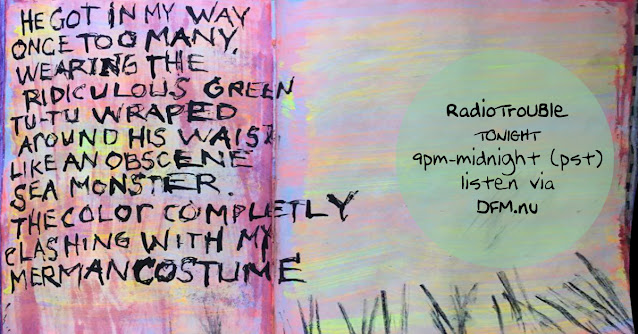 HE GOT IN MY WAY
ONCE TOO MANY,
WEARING THE
RIDICULOUS GREEN
TU-TU WRAPED
AROUND HIS WAIST
LIKE AN OBSCENE
SEA MONSTER.
THE COLOR COMPLETLY
CLASHING WITH MY
MERMAN COSTUME
RadioTrouBle
TONIGHT
9pm-midnight (pst)
listen via
DFM.nu